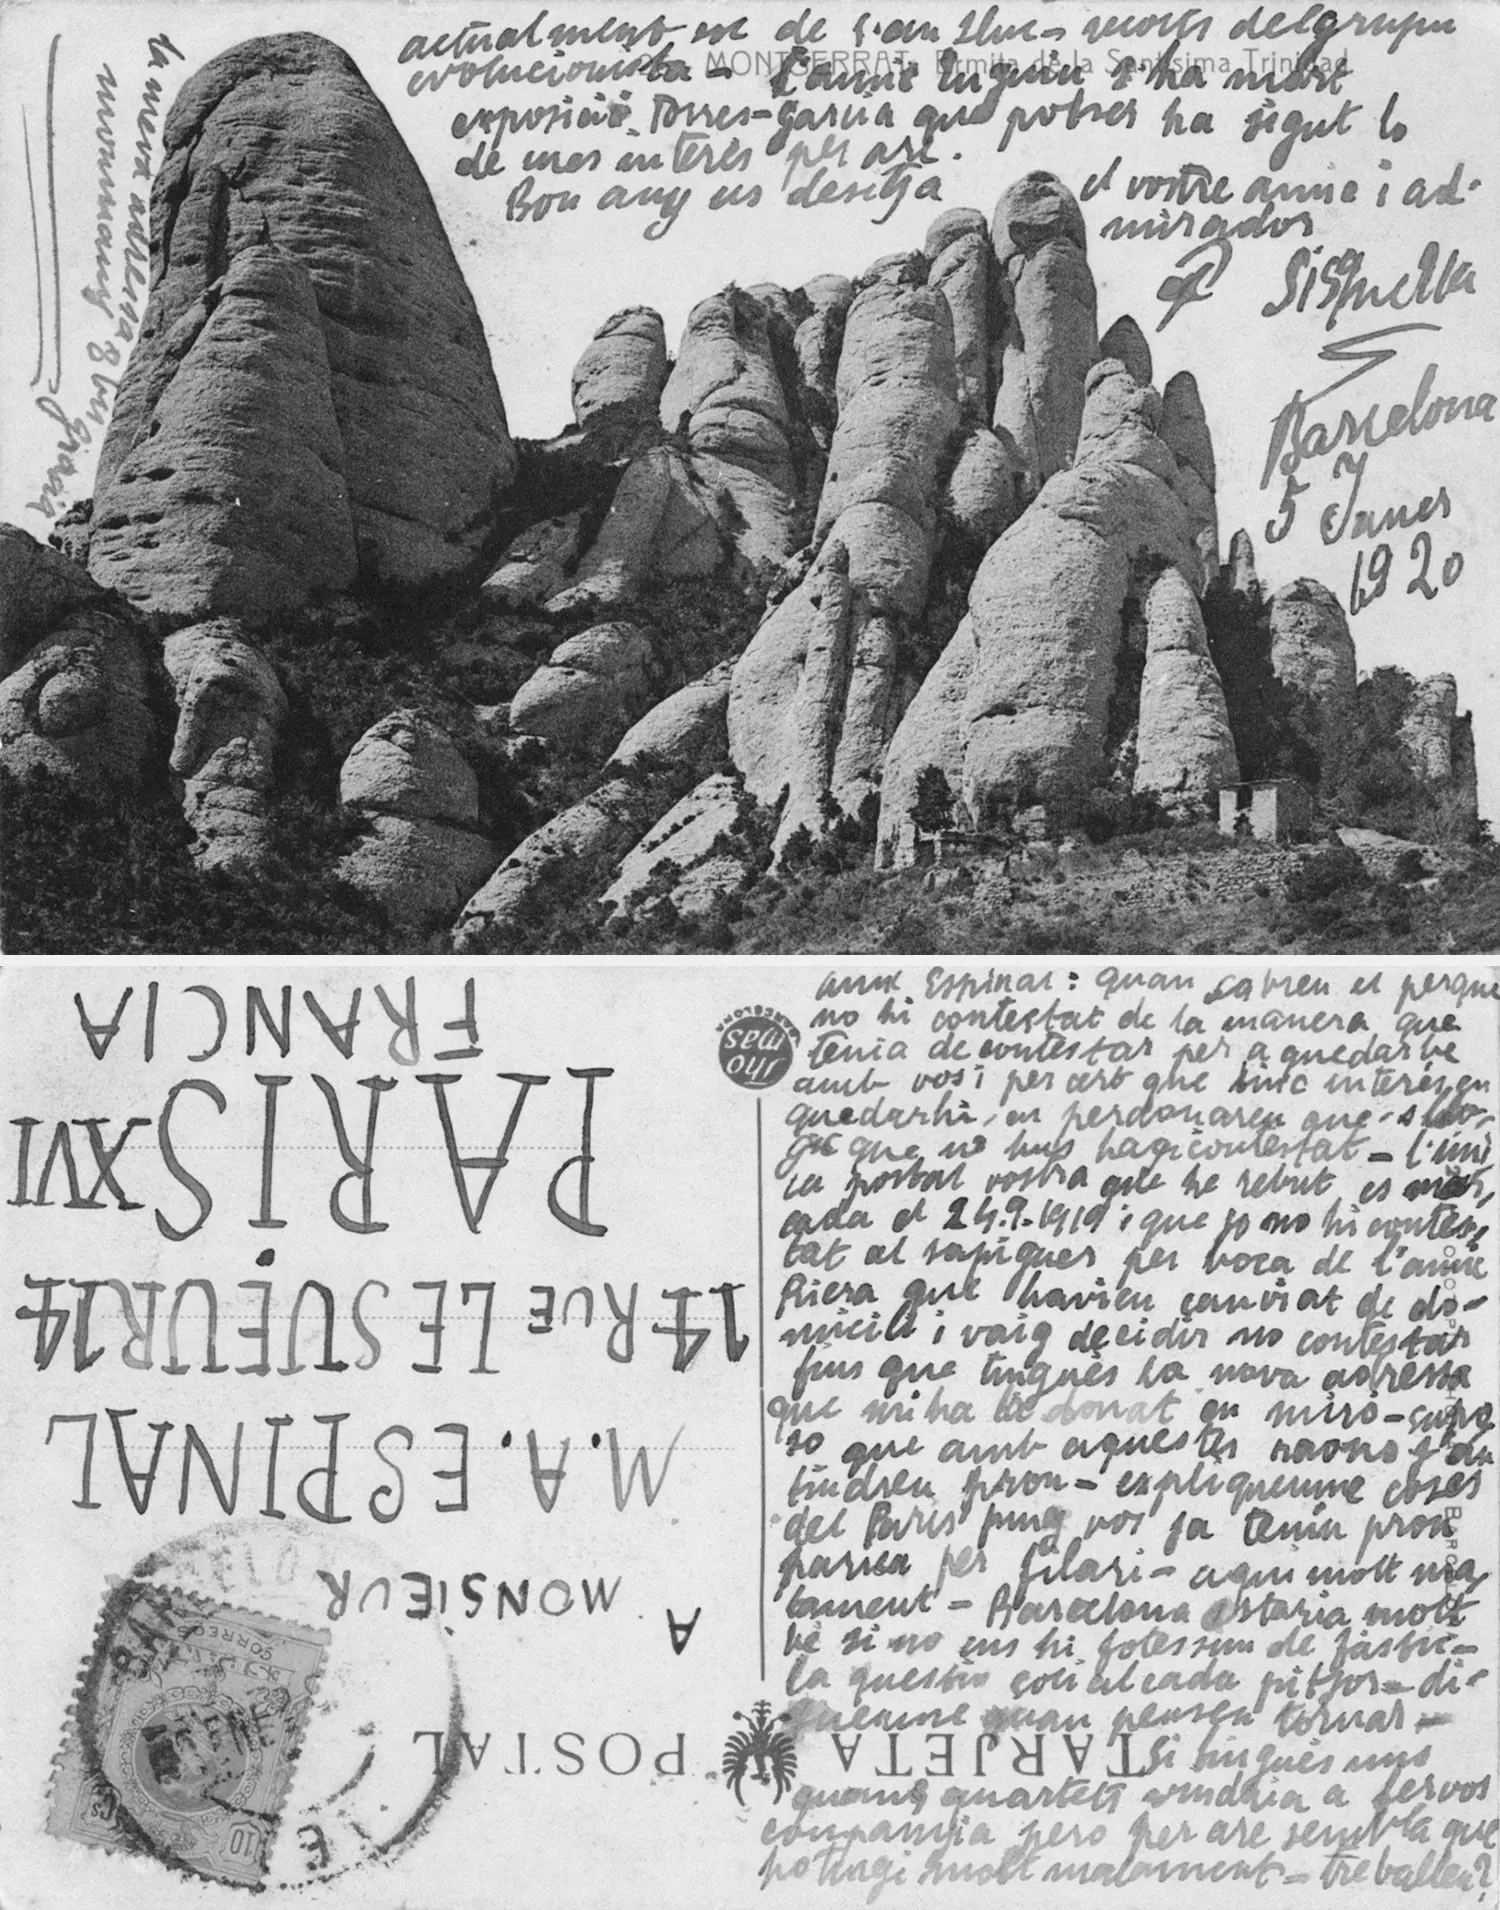 actualment exc de S. an Lluc – records del grupu
evolucionista – l'amic Enguiu s'ha mort
MONTSERRAT. Ermita de la Santisima Trinidad
exposició Torres-Garcia que potser ha sigut lo
de mes interés per are.
Bon any us desitja
el vostre amic i ad-
mirador
Sisquella
Barcelona
5 Janer
1920
la meva adresa
Gracia
amic Espinal: quan sabreu el perque
no hi contestat de la manera que
tenia de contestar per a quedar be
amb vos i per cert que tinc interés en
quedarhi, em perdonareu que
que no hus hagi contestat – l'uni
ca postal vostra que he rebut es mar,
cada el 24.9.1919 i que jo no hi contes,
tat al sapiguer per boca de l'amic
Riera que havieu canviat de do-
micili i vaig decidir no contestar
fins que tingués la nova adressa
que mi ha donat en miró – supo
so que amb aquestes raons ja'n
tindreu prou – expliqueume coses
del Paris puig vos ja teniu prou
parıca per filari – aqui molt ma,
lament – Barcelona estaria molt
bé si no ens hi fotessim de fástic –
la questio social cada pitjor – di-
gueume quan penseu tornar –
Si tingués uns
quans quartets vindria a fervos
companyia pero per are sembla que
potingi molt malament – treballeu?
Jho
mas
BARCELONA
TARJETA POSTAL
A MONSIEUR
M.A. ESPINAL
14 RUE LE SUEUR 14
PARIS XVI
FRANCIA
CORREOS
10 Cs